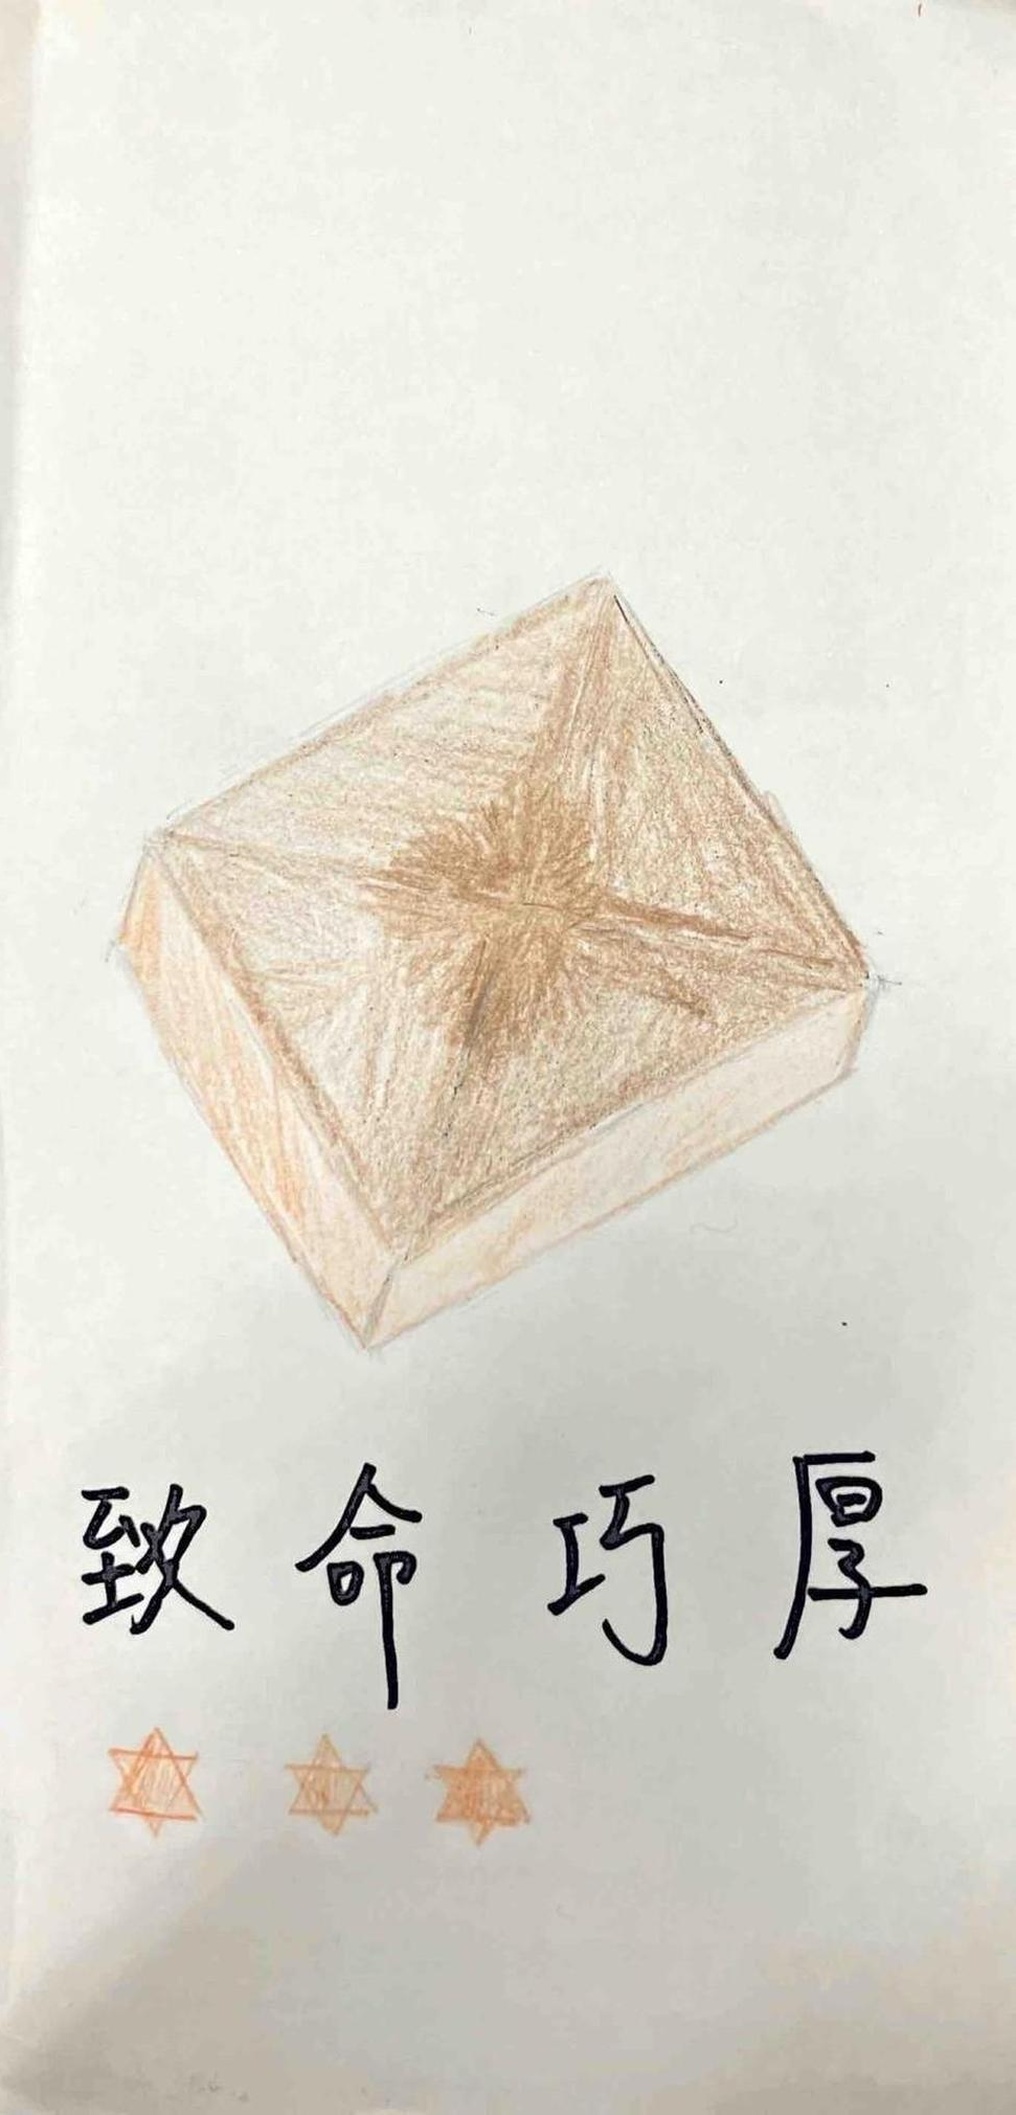 致命巧厚